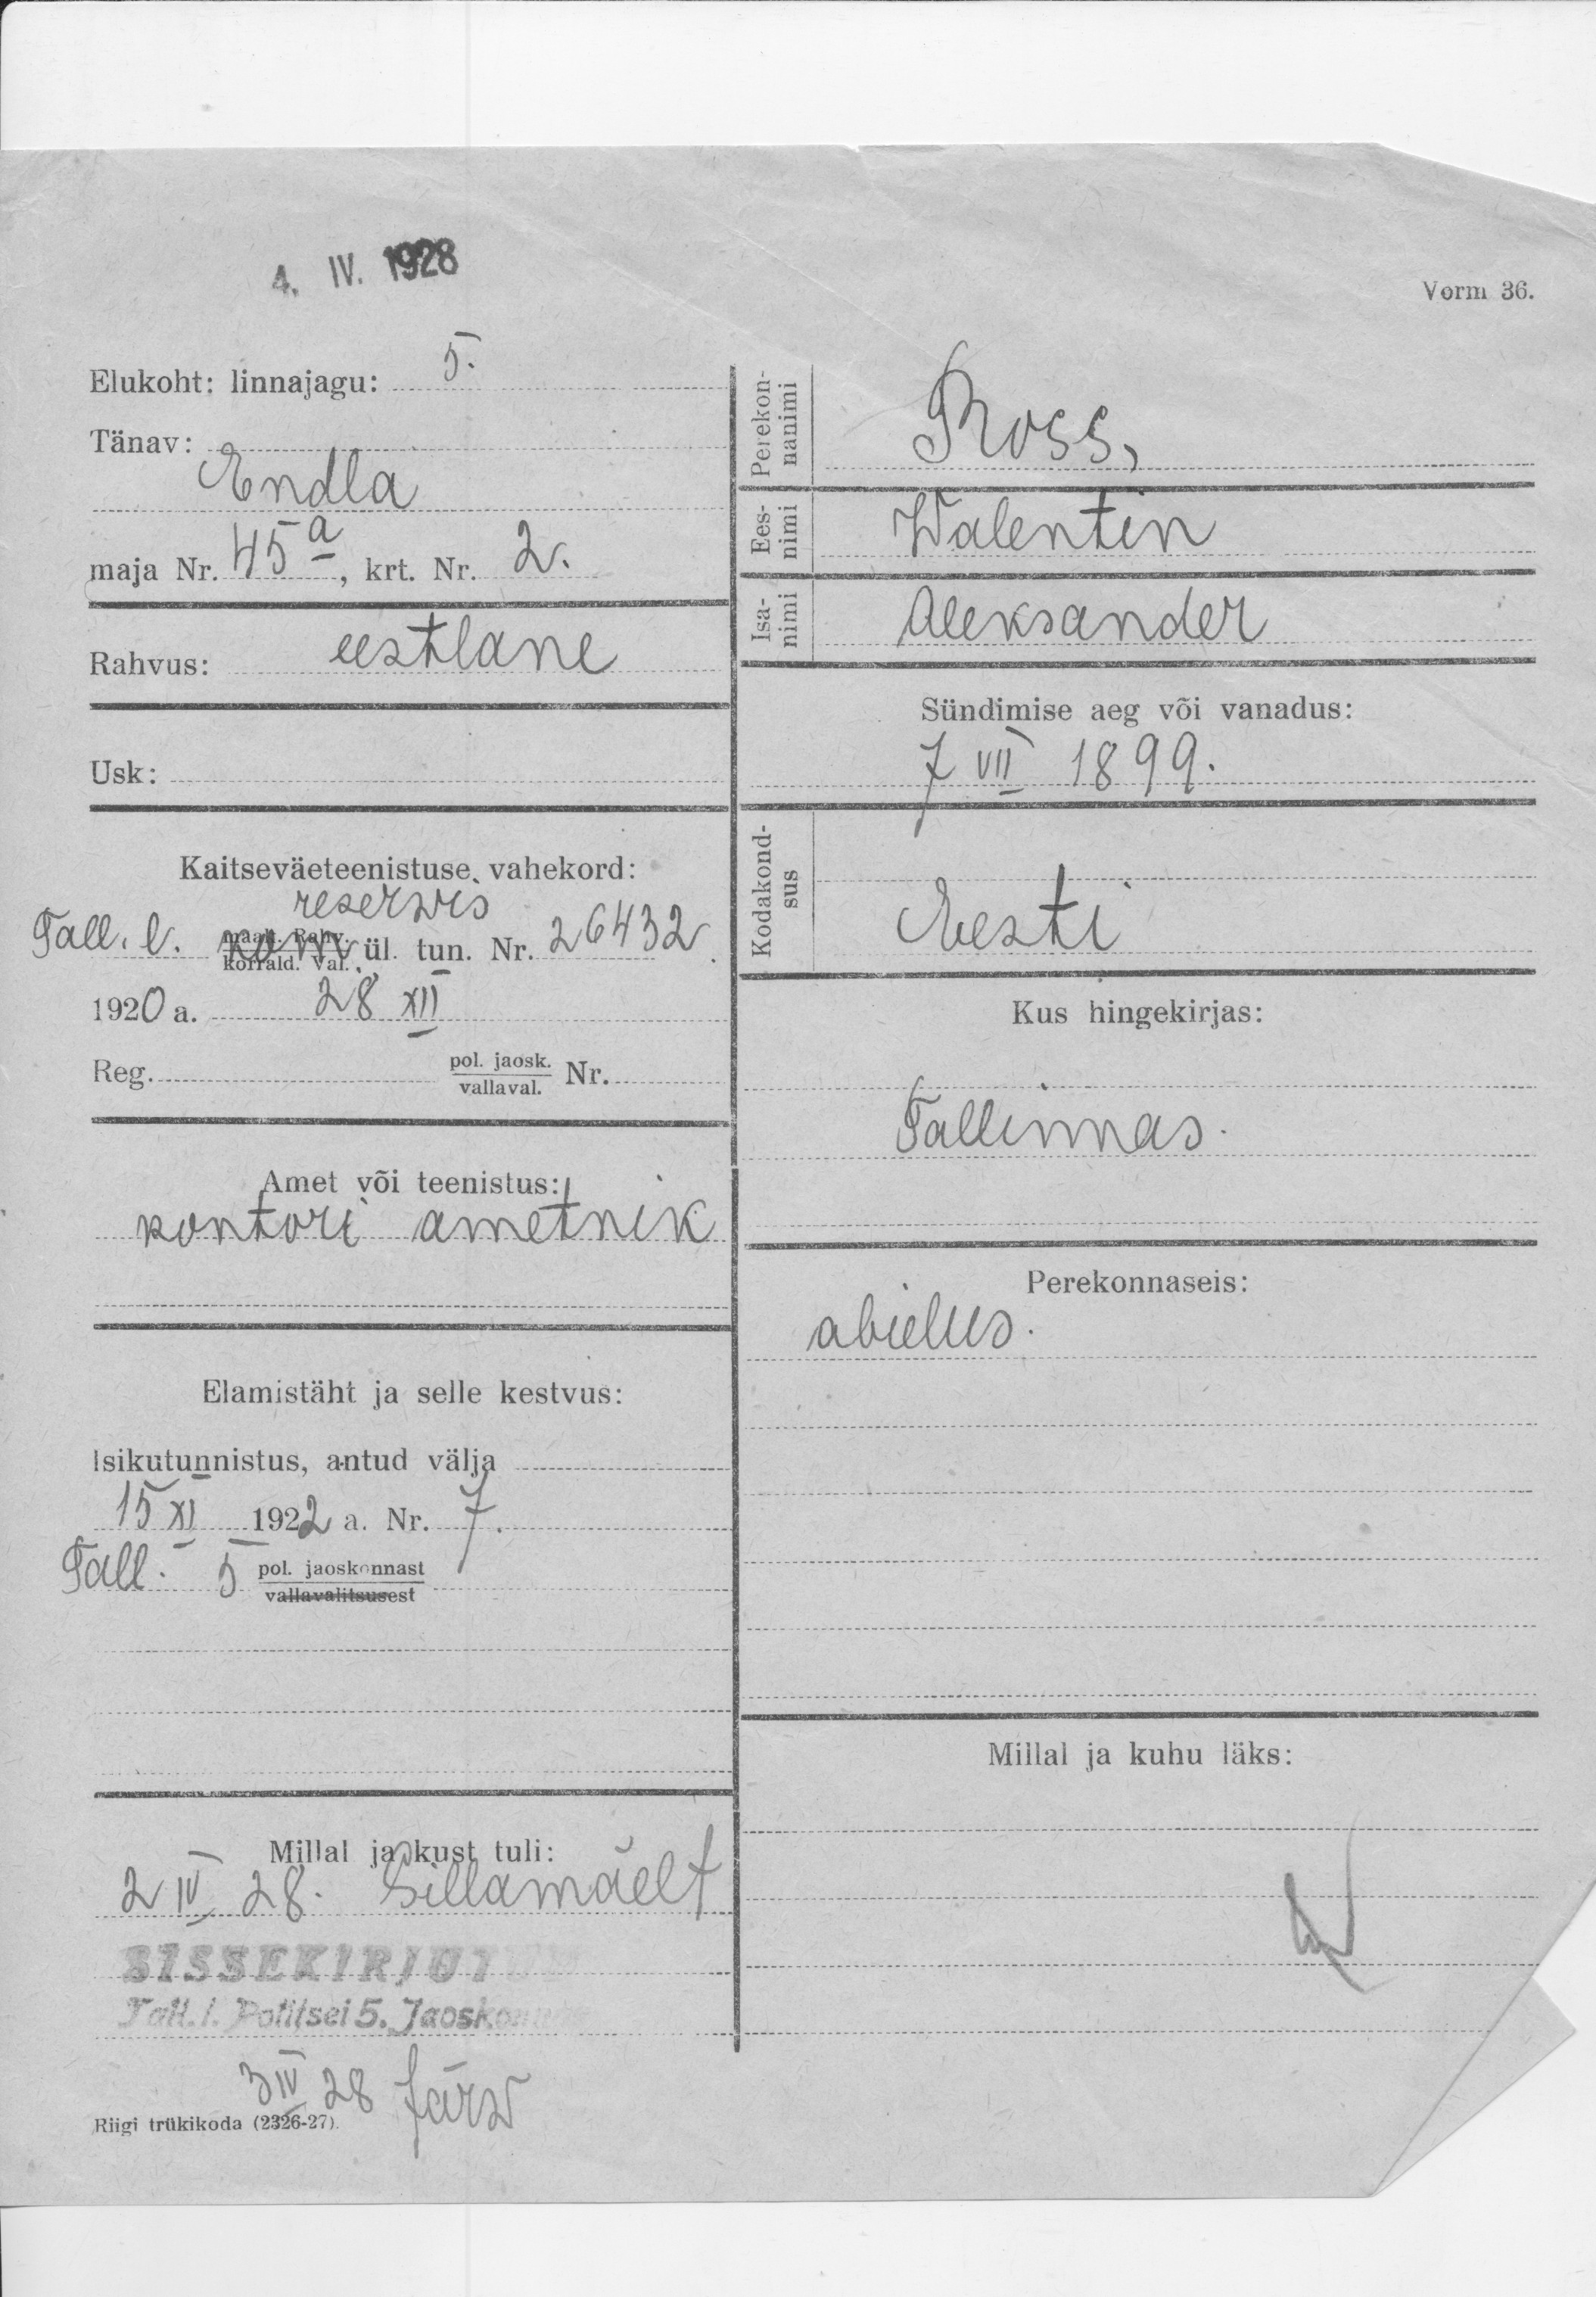 4. IV. 1928
Vorm 36.
Elukoht: linnajagu: 5.
Tänav:
Endla
maja Nr. 45a, krt. Nr. 2.
Rahvus: eestlane
Usk:
Kaitseväeteenistuse vahekord:
reserwis
Tall. l. kom ül. tun. Nr. 26432
korrald. Val.
1920 a. 28 XII
Reg. pol. jaosk. Nr.
vallaval.
Amet või teenistus:
kontori ametnik
Elamistäht ja selle kestvus:
Isikutunnistus, antud välja
15 XI 1922 a. Nr. 7.
Tall. 5 pol. jaoskonnast
vallavalitsusest
Millal ja kust tuli:
2 IV 28. Sillamäelt
SISSEKIRJUT
Tall. l. Politsei 5. Jaoskonnas
3 IV 28 Järw
Riigi trükikoda (2326-27).
Perekon-
nanimi
Ross,
Ees-
nimi
Walentin
Isa-
nimi
Aleksander
Sündimise aeg või vanadus:
7 VII 1899.
Kodakond-
sus
Eesti
Kus hingekirjas:
Tallinnas.
Perekonnaseis:
abielus.
Millal ja kuhu läks: